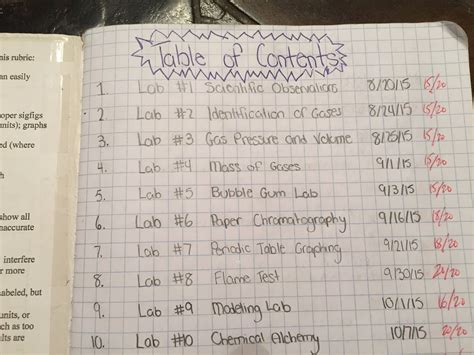 nis rubric:
an easily
oper sigfigs
units); graphs
ed (where
h
show all
naccurate
interfere
r more
abeled, but
units, or
ch as too
lts are
Table of Contents
1. Lab #1 Scientific Observations 8/20/15 15/20
2. Lab #2 Identification of Gases 8/24/15 15/20
3. Lab #3 Gas Pressure and Volume 8/25/15 15/20
4. Lab #4 Mass of Gases 9/1/15 15/20
5. Lab #5 Bubble Gum Lab 9/3/15 15/20
6. Lab #6 Paper Chromatography 9/16/15 18/20
7. Lab #7 Periodic Table Graphing 9/21/15 18/20
8. Lab #8 Flame Test 9/30/15 20/20
9. Lab #9 Modeling Lab 10/1/15 16/20
10. Lab #10 Chemical Alchemy 10/7/15 20/20